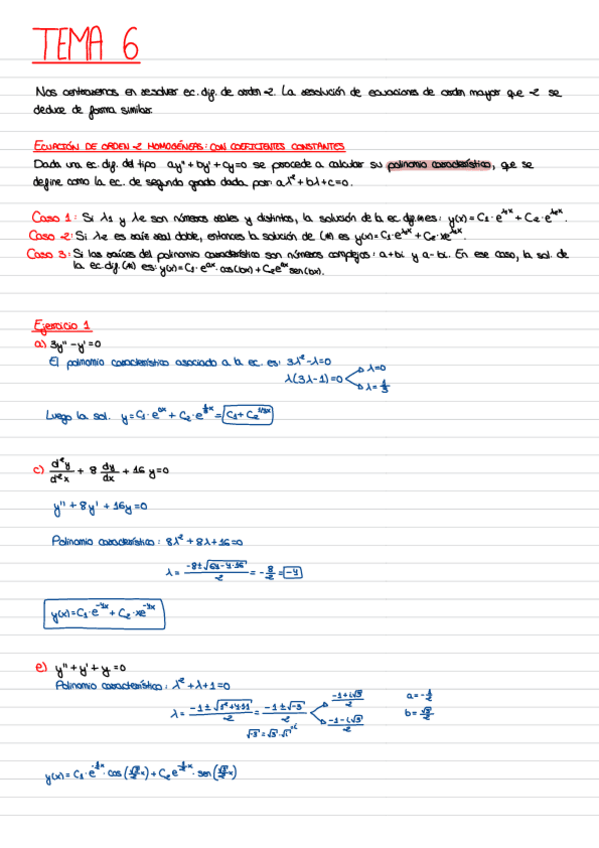 TEMA 6
Nos centraremos en resolver ec. dif. de orden 2. La resolución de ecuaciones de orden mayor que 2 se
deduce de forma similar.
ECUACIÓN DE ORDEN 2 HOMOGÉNEAS: CON COEFICIENTES CONSTANTES
Dada una ec. dif. del tipo ay''+by'+cy=0 se procede a calcular su polinomio característico, que se
define como la ec. de segundo grado dada por: aλ²+bλ+c=0.
Caso 1: Si λ1 y λ2 son números reales y distintos, la solución de la ec. dif. es: y(x)=C1·e^λ1x + C2·e^λ2x.
Caso 2: Si λ2 es raíz real doble, entonces la solución de (*) es y(x)=C1·e^λx + C2·xe^λx.
Caso 3: Si las raíces del polinomio característico son números complejos: a+bi y a-bi. En ese caso, la sol. de
la ec. dif. (*) es: y(x)=C1·e^ax·cos(bx)+C2e^ax sen(bx).
Ejercicio 1
a) 3y''-y'=0
El polinomio característico asociado a la ec. es: 3λ²-λ=0
λ(3λ-1)=0 λ=0
λ=1/3
Luego la sol. y=C1·e^0x + C2·e^1/3x = C1+C2^1/3x
c) d²y/d²x + 8 dy/dx + 16y=0
y''+8y'+16y=0
Polinomio característico: 8λ²+8λ+16=0
λ= -8±√64-4·16/2 = -8/2 = -4
y(x)=C1·e^-4x + C2·xe^-4x
e) y''+y'+y=0
Polinomio característico: λ²+λ+1=0
λ= -1±√1²+4·1·1/2 = -1±√-3/2 -1+i√3/2 a=-1/2
-1-i√3/2 b=√3/2
√-3=√3·√-1 i
y(x)=C1·e^-1/2x·cos(√3/2 x)+C2e^-1/2x·sen(√3/2 x)